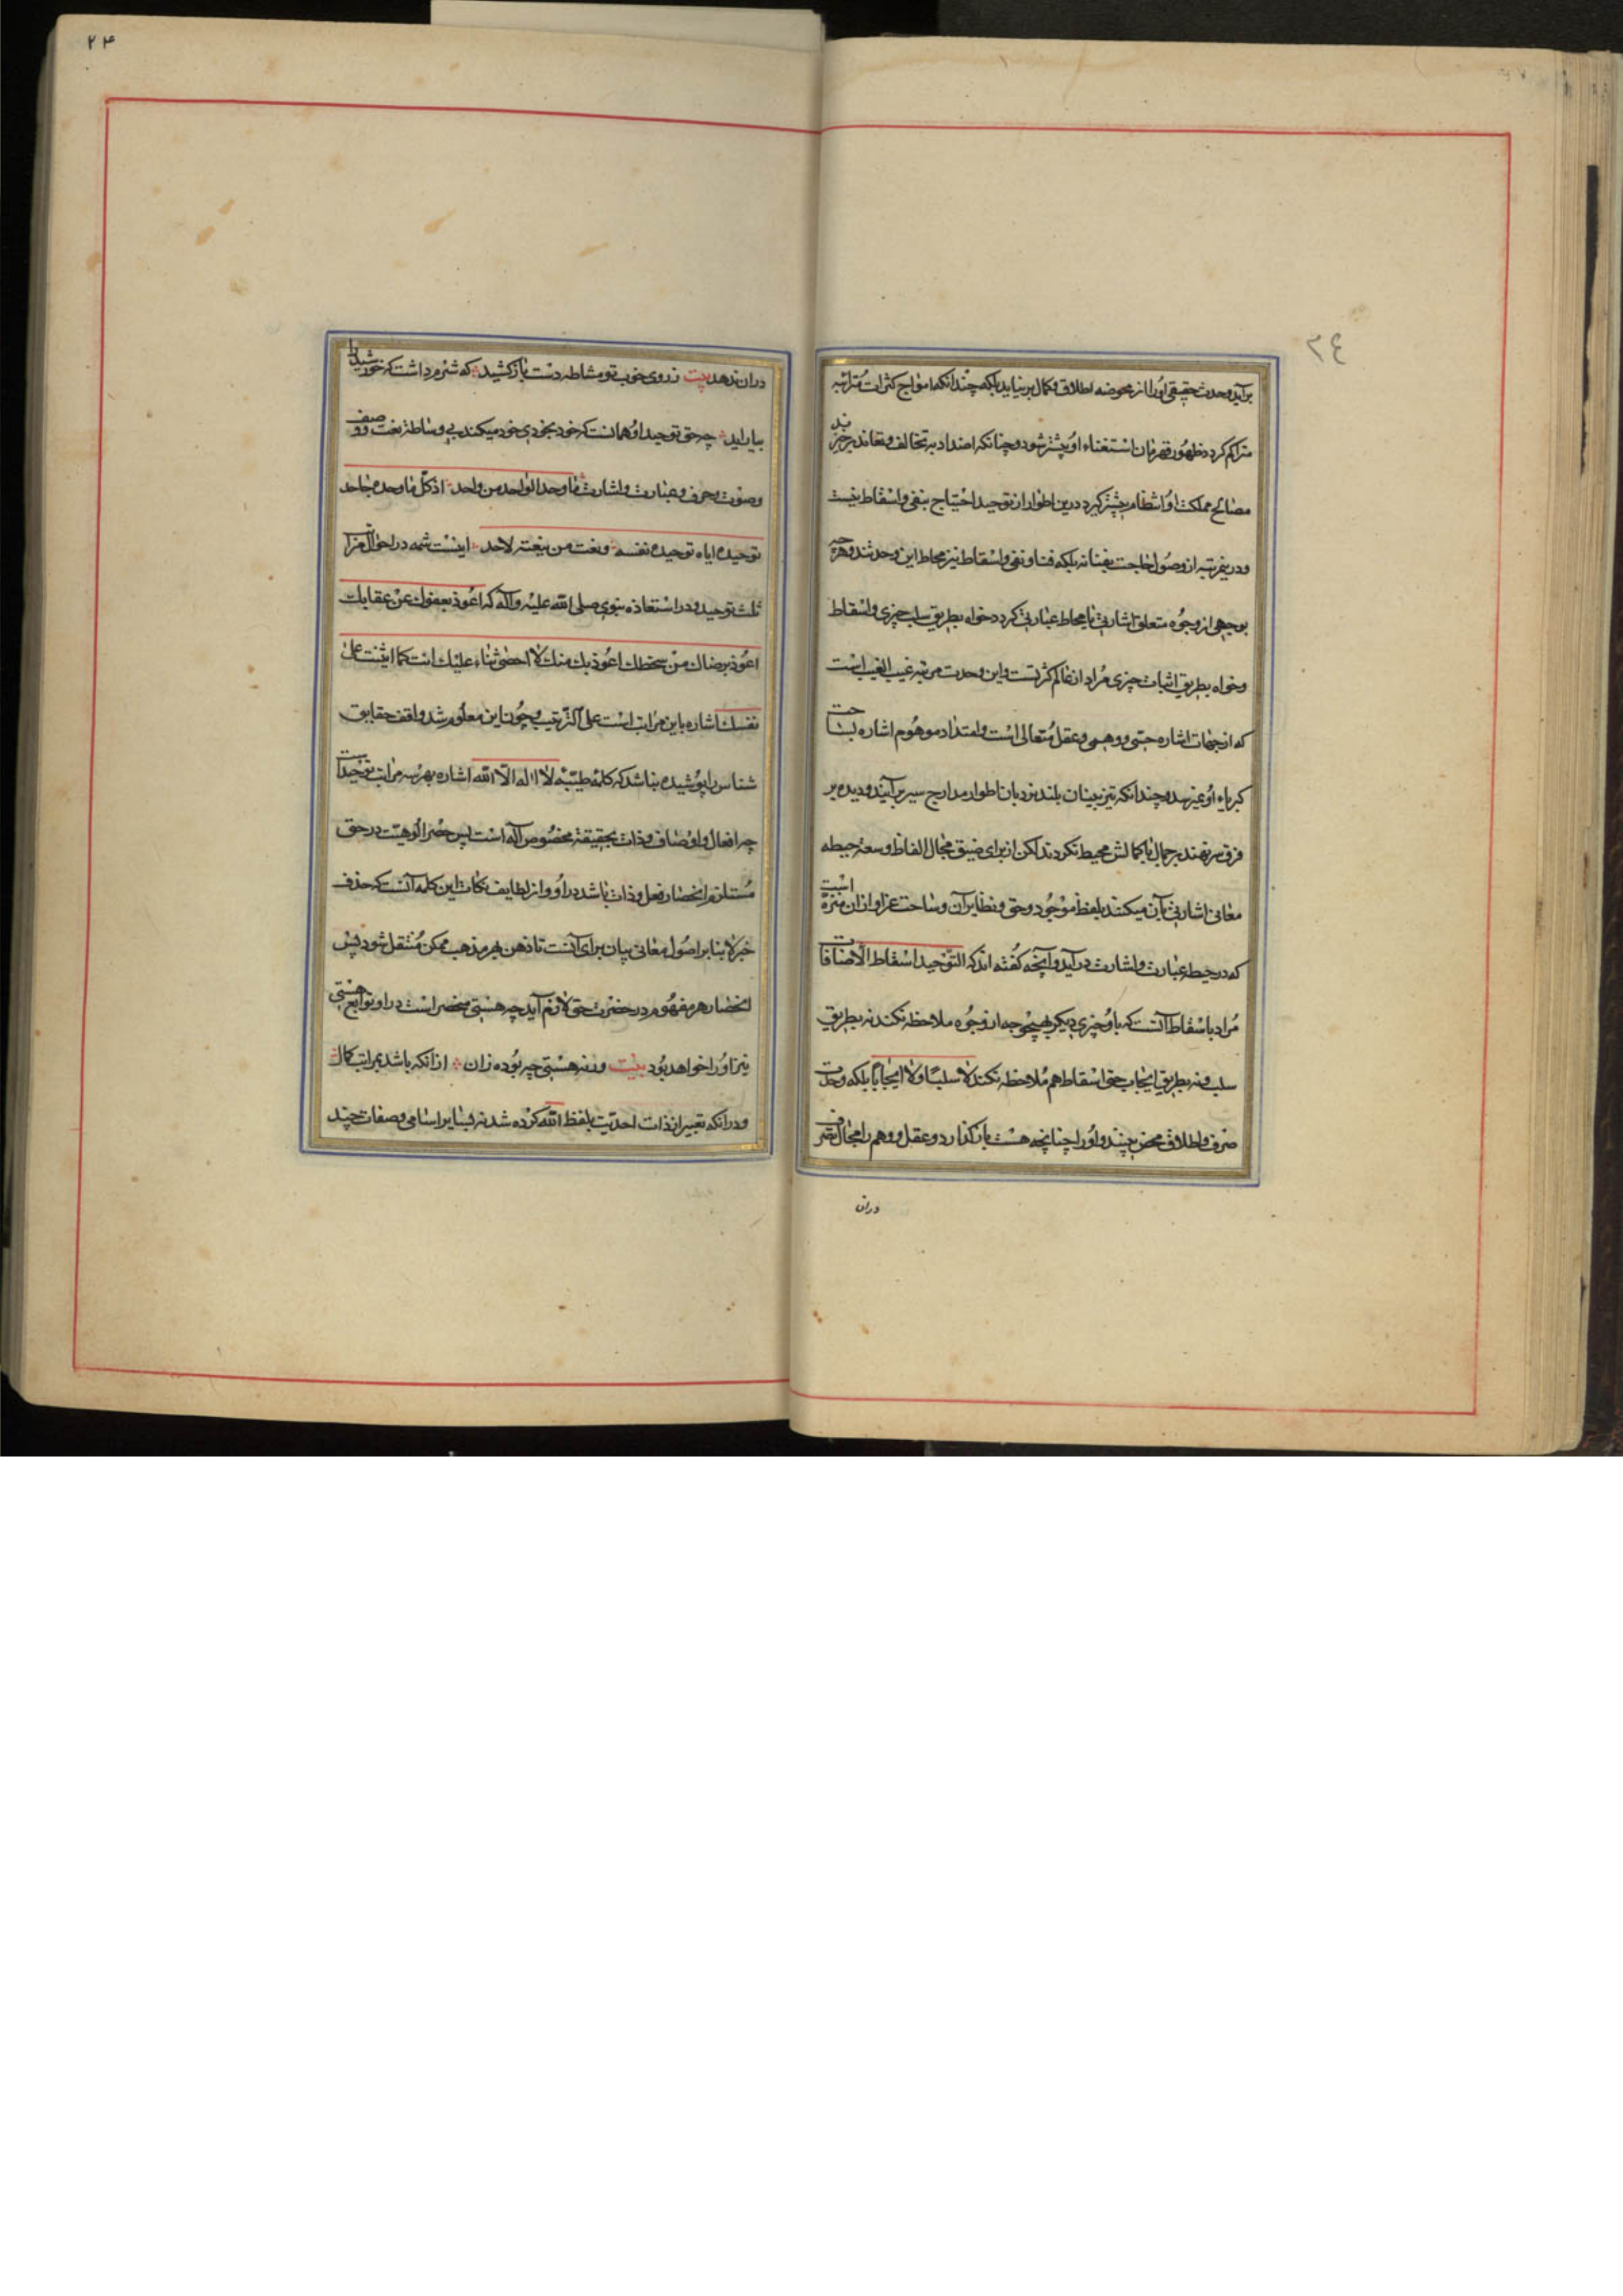 ۲٤
برآید وحدت حقیقی او را از محوضه اطلاق و کمال بر نیاید بلکه چندانکه امواج کثرات متراتبه
متراکم کردد ظهور قهرمان استغناء او بیشتر شود و چنانکه اضداد به تخالف و تعاند برخیزند
مصالح مملکت او انتظام بیشتر کیرد درین اطوار از توحید احتیاج بنفی و اسقاط نیست
و درین مرتبه از وصول حاجت بفنا نه بلکه فنا و نفی و اسقاط نیز محاط این وحدتند و هرچه
بوجهی از وجوه متعلق اشارتی یا محاط عبارتی کردد خواه بطریق سلب چیزی و اسقاط
و خواه بطریق اثبات چیزی مراد از عالم کثرتست و این وحدت مرتبه غیب الغیب است
که از جهات اشاره حسی و وهمی و عقل متعالی است و امتداد موهوم اشاره بساحت
کبریاء او نمیرسد و چندانکه تیزبینان بلند نردبان اطوار مدارج سیر برآیند و دیده بر
فرق سر نهند بر جمال با کمالش محیط نکردند لکن از برای ضیق مجال الفاظ و سعة حیطه
معانی اشارتی بآن میکنند بلفظ موجود و حق و نظایر آن و ساحت عز او از ان منزه است
که در حیطه عبارت و اشارت درآید و آنچه کفته اند که التوحید اسقاط الاضافات
مراد باسقاط آنست که با او چیزی دیکر بهیچ وجه از وجوه ملاحظه نکند نه بطریق
سلب و نه بطریق ایجاب حتی اسقاط هم ملاحظه نکند لا سلبا و لا ایجابا بلکه وحدت
صرف و اطلاق محض بیند و او را چنانچه هست باز کذارد و عقل و وهم را مجال تصرف
دران
۲۴
دران ندهد بیت ز روی خوب تو مشاطه دست باز کشید که شرم داشت که خورشید را
بیاراید چه حق توحید او همانست که خود بخودی خود میکند بی وساطة نعت و وصف
و صوت و حرف و عبارت و اشارت ما وحد الواحد من واحد اذ کل ما وحده جاحد
توحیده ایاه توحیده نفسه و نعت من ینعته لاحد اینست شمه در احوال مراتب
ثلث توحید و در استعاذه نبوی صلی الله علیه وآله که اعوذ بعفوك عن عقابك
اعوذ برضاك من سخطك اعوذ بك منك لا احصی ثناء علیك انت کما اثنیت علی
نفسك اشاره باین مراتب است علی الترتیب و چون این معلوم شد واقف حقایق
شناس را پوشیده نباشد که کلمه طیبه لا اله الا الله اشاره بهر سه مراتب توحید است
چه افعال و اوصاف و ذات بحقیقة مخصوص اله است پس حصر الوهیت در حق
مستلزم انحصار فعل و ذات باشد در او و از لطایف نکات این کلمه آنست که حذف
خبر لا بنا بر اصول معانی بیان برای آنست تا ذهن بهر مذهب ممکن منتقل شود پس
انحصار هر مفهوم در حضرت حق لازم آید چه هستی منحصر است در او و توابع هستی
نیز او را خواهد بود بیت ورنه هستی چه بوده زان از انکه باشد بمراتب کمال
و در انکه تعبیر از ذات احدیت بلفظ الله کرده شد نه بسایر اسامی و صفات چند